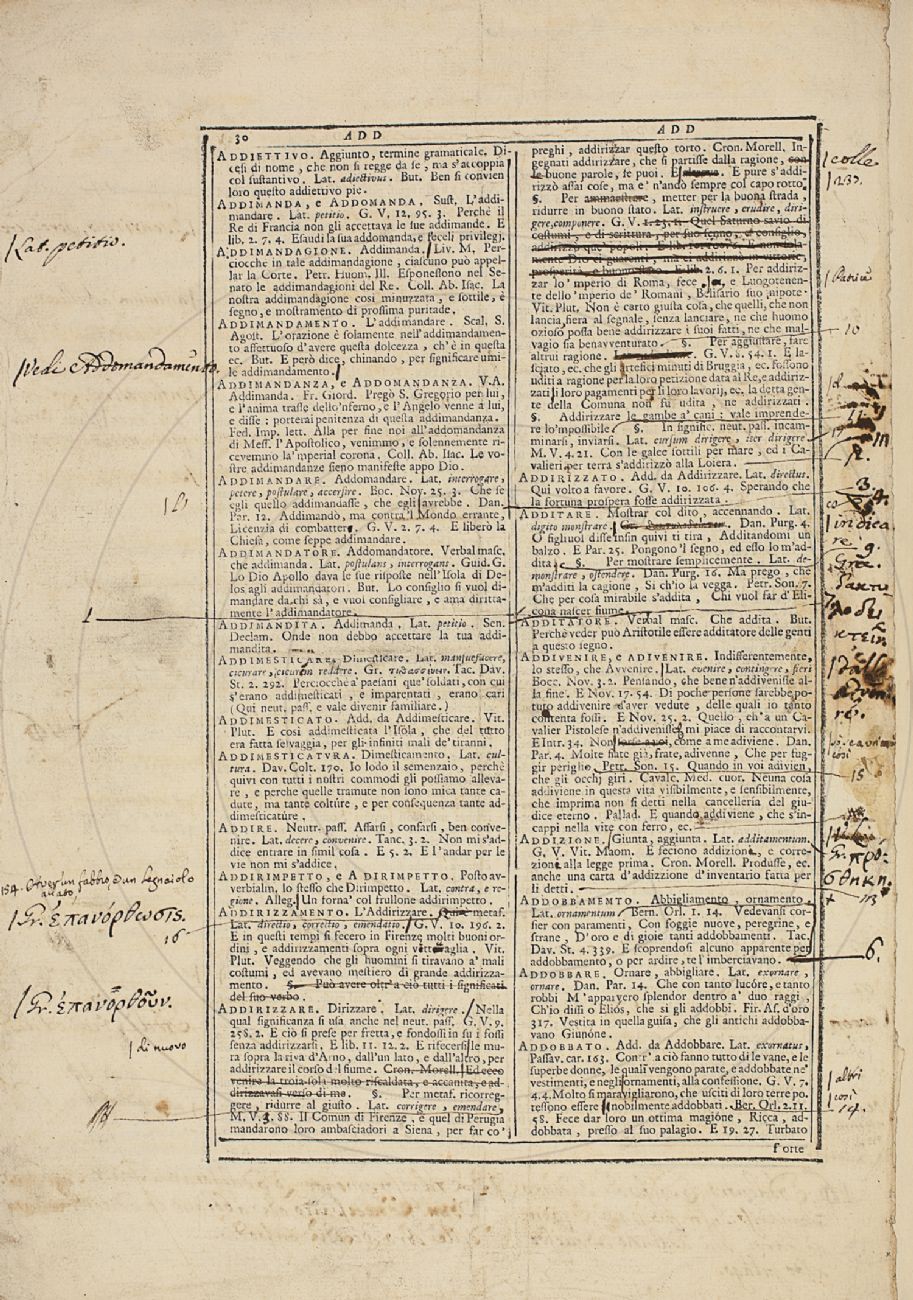 30 ADD
ADDIETTIVO. Aggiunto, termine gramaticale. Di-
cesi di nome, che non si regge da se, ma s'accoppia
col sustantivo. Lat. adiectivus. But. Ben si convien
loro questo addiettivo pie.
ADDIMANDA, e ADDOMANDA. Sust. L'addi-
mandare. Lat. petitio. G. V. 12. 95. 3. Perchè il
Re di Francia non gli accettava le sue addimande. E
lib. 2. 7. 4. Esaudi la sua addomanda, e feceli privilegj.
Lat. petitio.
ADDIMANDAGIONE. Addimanda. Liv. M. Per-
ciocchè in tale addimandagione, ciascuno può appel-
lar la Corte. Petr. Huom. Ill. Esponestono nel Se-
nato le addimandagioni del Re. Coll. Ab. Isac. La
nostra addimandagione così minuzzata, e sottile, è
segno, e mostramento di prossima puritade.
ADDIMANDAMENTO. L'addimandare. Scal. S.
Agost. L'orazione è solamente nell'addimandamen-
to affettuoso d'avere questa dolcezza, ch'è in questa
ec. But. E però dice, chinando, per significare umi-
le addimandamento.
Vede Addomandamento.
ADDIMANDANZA, e ADDOMANDANZA. V.A.
Addimanda. Fr. Giord. Pregò S. Gregorio per lui,
e l'anima trasse dello'nferno, e l'Angelo venne a lui,
e disse: porterai penitenza di questa addimandanza.
Fed. Imp. lett. Alla per fine noi all'addomandanza
di Mess. l'Apostolico, venimmo, e solennemente ri-
cevemmo la'mperial corona. Coll. Ab. Isac. Le vo-
stre addimandanze sieno manifeste appo Dio.
ADDIMANDARE. Addomandare. Lat. interrogare,
petere, postulare, accersire. Boc. Nov. 25. 3. Che se
egli quello addimandasse, che egli avrebbe. Dan.
Par. 12. Addimandò, ma contra'l Mondo errante,
Licenzia di combatter. G. V. 2. 7. 4. E liberò la
Chiesa, come seppe addimandare.
ADDIMANDATORE. Addomandatore. Verbal masc.
che addimanda. Lat. postulans, interrogans. Guid. G.
Lo Dio Apollo dava le sue risposte nell'Isola di De-
los agli addimandatori. But. Lo consiglio si vuol di-
mandare da chi sà, e vuol consigliare, e ama diritta-
mente l'addimandatore.
ADDIMANDITA. Addimanda. Lat. petitio. Sen.
Declam. Onde non debbo accettare la tua addi-
mandita.
ADDIMESTICARE. Dimesticare. Lat. mansuefacere,
cicurare, cicurem reddere. Gr. Tac. Dav.
St. 2. 292. Perciocchè a' paesani que' soldati, con cui
s'erano addimesticati, e imparentati, erano cari
(Qui neut. pass. e vale divenir familiare.)
ADDIMESTICATO. Add. da Addimesticare. Vit.
Plut. E così addimesticata l'Isola, che del tutto
era fatta selvaggia, per gli infiniti mali de' tiranni.
ADDIMESTICATVRA. Dimesticamento. Lat. cul-
tura. Dav. Colt. 170. Io lodo il semenzaio, perchè
quivi con tutti i nostri commodi gli possiamo alleva-
re, e perchè quelle tramute non sono mica tante ca-
dute, ma tante colture, e per conseguenza tante ad-
dimesticature.
ADDIRE. Neutr. pass. Affarsi, confarsi, ben conve-
nire. Lat. decere, convenire. Tanc. 3. 2. Non mi s'ad-
dice entrare in simil cosa. E 5. 2. E l'andar per le
vie non mi s'addice.
ADDIRIMPETTO, e A DIRIMPETTO. Posto av-
verbialm. lo stesso che Dirimpetto. Lat. contra, e re-
gione. Alleg. Un forna' col frullone addirimpetto.
154.
ADDIRIZZAMENTO. L'Addirizzare. Quiè metaf.
Gr. ἐπανόρθωσις.
Lat. directio, correctio, emendatio. G. V. 10. 196. 2.
16
E in questi tempi si fecero in Firenze molti buoni or-
dini, e addirizzamenti sopra ogni vettovaglia. Vit.
Plut. Veggendo che gli huomini si tiravano a' mali
costumi, ed avevano mestiero di grande addirizza-
mento. §. Può avere oltr'a ciò tutti i significati
del suo verbo.
Gr. ἐπανορθοῦν.
ADDIRIZZARE. Dirizzare. Lat. dirigere. Nella
qual significanza si usa anche nel neut. pass. G. V. 9.
258. 2. E ciò si prese per fretta, e fondossi in su i fossi
senza addirizzarsi. E lib. 11. 12. 2. E rifecersile mu-
di nuovo
ra sopra la riva d'Arno, dall'un lato, e dall'altro, per
addirizzare il corso del fiume. Cron. Morell. Ed ecco
venire la troia sola molto riscaldata, e accanita, e ad-
dirizzavasi verso di me. §. Per metaf. ricorreg-
gere, ridurre al giusto. Lat. corrigere, emendare.
M. V. 3. 88. Il Comun di Firenze, e quel di Perugia
mandarono loro ambasciadori a Siena, per far co'
ADD
preghi, addirizzar questo torto. Cron. Morell. In-
gegnati addirizzare, che si partisse dalla ragione, con
le buone parole, se puoi. E E pure s'addi-
colle
233.
rizzò assai cose, ma e' n'andò sempre col capo rotto.
§. Per ammaestrare, metter per la buona strada,
ridurre in buono stato. Lat. instruere, erudire, diri-
gere, componere. G. V. 1. 25. 1. Quel Saturno savio di
costumi, e di scrittura, per suo senno, e consiglio,
addirizzò que' popoli.
mente Dio ei guarenti, ma ei addirizzò in vittorie,
prosperità, e buono stato. E lib. 2. 6. 1. Per addiriz-
zar lo 'mperio di Roma, fece Luogotenen-
Patrizio
te dello 'mperio de' Romani, Belisario suo nipote.
Vit. Plut. Non è carto giusta cosa, che quelli, che non
lancia, fiera al segnale, senza lanciare, ne che huomo
ozioso possa bene addirizzare i suoi fatti, ne che mal-
vagio sia benavventurato. §. Per aggiustare, fare
10
altrui ragione. G. V. 8. 54. 1. E la-
sciato, ec. che gli artefici minuti di Bruggia, ec. fossono
uditi a ragione per la loro petizione data al Re, e addiriz-
zati li loro pagamenti per li loro lavorij, ec. la detta gen-
te della Comuna non fu udita, ne addirizzati.
§. Addirizzare le gambe a' cani: vale imprende-
re lo'mpossibile. §. In signific. neut. pass. incam-
minarsi, inviarsi. Lat. cursum dirigere, iter dirigere.
17
M. V. 4. 21. Con le galee sottili per mare, ed i Ca-
valieri per terra s'addirizzò alla Loiera.
ADDIRIZZATO. Add. da Addirizzare. Lat. directus.
Qui volto a favore. G. V. 10. 106. 4. Sperando che
la fortuna prospera fosse addirizzata.
3.
ADDITARE. Mostrar col dito, accennando. Lat.
digito monstrare. Dan. Purg. 4.
indica
re
O figliuol disse insin quivi ti tira, Additandomi un
balzo. E Par. 25. Pongono'l segno, ed esso lo m'ad-
dita. §. Per mostrare semplicemente. Lat. de-
9.
monstrare, ostendere. Dan. Purg. 16. Ma prego, che
m'additi la cagione, Si ch'io la vegga. Petr. Son. 7.
Che per cosa mirabile s'addita, Chi vuol far d'Eli-
cona nascer fiume.
ADDITATORE. Verbal masc. Che addita. But.
Perchè veder può Aristotile essere additatore delle genti
a questo segno.
ADDIVENIRE, e ADIVENIRE. Indifferentemente,
lo stesso, che Avvenire. Lat. evenire, contingere, fieri
Bocc. Nov. 3. 2. Pensando, che bene n'addivenisse al-
la fine. E Nov. 17. 54. Di poche persone sarebbe po-
tuto addivenire d'aver vedute, delle quali io tanto
contenta fossi. E Nov. 25. 2. Quello, ch'a un Ca-
valier Pistolese n'addivenisse, mi piace di raccontarvi.
E Intr. 34. Non forse a voi, come a me adiviene. Dan.
Par. 4. Molte fiate già, frate, adivenne, Che per fug-
gir periglio. Petr. Son. 15. Quando in voi adivien,
15
che gli occhj giri. Cavalc. Med. cuor. Neuna cosa
addiviene in questa vita visibilmente, e sensibilmente,
che imprima non si detti nella cancelleria del giu-
dice eterno. Pallad. E quando addiviene, che s'in-
cappi nella vite con ferro, ec.
ADDIZIONE. Giunta, aggiunta. Lat. additamentum.
G. V. Vit. Maom. E feciono addizioni, e corre-
zioni alla legge prima. Cron. Morell. Produsse, ec.
anche una carta d'addizzione d'inventario fatta per
li detti.
Gr. προσ-
θήκη.
ADDOBBAMENTO. Abbigliamento, ornamento.
Lat. ornamentum. Bern. Orl. 1. 14. Vedevansi cor-
sier con paramenti, Con foggie nuove, peregrine, e
strane, D'oro e di gioie tanti addobbamenti. Tac.
Dav. St. 4. 339. E scopredosi alcuno apparente per
addobbamento, o per ardire, te l'imberciavano.
6.
ADDOBBARE. Ornare, abbigliare. Lat. exornare,
ornare. Dan. Par. 14. Che con tanto lucore, e tanto
robbi M'apparvero splendor dentro a' duo raggi,
Ch'io dissi o Eliòs, che si gli addobbi. Fir. As. d'oro
317. Vestita in quella guisa, che gli antichi addobba-
vano Giunone.
ADDOBBATO. Add. da Addobbare. Lat. exornatus,
Passav. car. 163. Contr' a ciò fanno tutto di le vane, e le
superbe donne, le quali vengono parate, e addobbate ne'
vestimenti, e negli ornamenti, alla confessione. G. V. 7.
4. 4. Molto si maravigliarono, che usciti di loro terre po-
tessono essere sì nobilmente addobbati. Ber. Orl. 2. 11.
altri
così
58. Fece dar loro un ottima magione, Ricca, ad-
dobbata, presso al suo palagio. E 19. 27. Turbato
forte